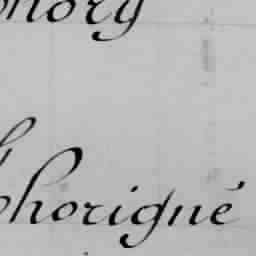 onory
phorigné